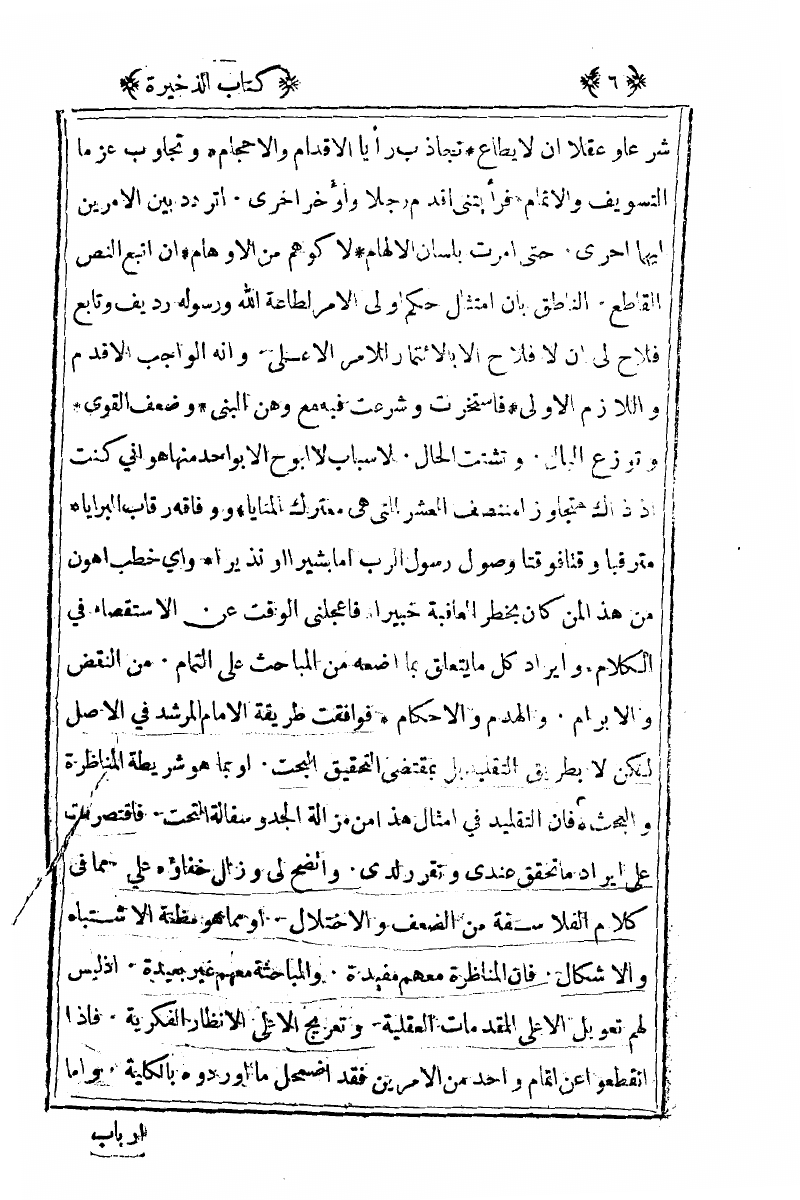 ﴿ ٦ ﴾ ﴿ كتاب الذخيرة ﴾
شرعا و عقلا ان لا يطاع * تجاذب رأيا الاقدام والاحجام * و تجاوب عزما
التسويف والاتمام * فرأيتنى اقدم رجلا وأوخر اخرى . اتردد بين الامرين
ايهما احرى . حتى امرت بلسان الالهام * لا كوهم من الاوهام * ان اتبع النص
القاطع . الناطق بان امتثال حكم اولى الامر لطاعة الله ورسوله رديف وتابع
فلاح لى ان لا فلاح الا بالائتمار للامر الاعلى . و انه الواجب الاقدم
و اللازم الاولى * فاستخرت و شرعت فيه مع وهن البنى * و ضعف القوى *
و توزع البال . و تشتت الحال . لاسباب لا ابوح الا بواحد منها هو اني كنت
اذ ذاك متجاوزا منتصف العشر التى هى معترك المنايا * و وفاقه رقاب البرايا *
مترقبا وقتا فوقتا وصول رسول الرب اما بشيرا او نذيرا * واي خطب اهون
من هذا لمن كان بخطر العاقبة خبيرا . فاعجلنى الوقت عن الاستقصاء في
الكلام . و ايراد كل ما يتعلق بما اضعه من المباحث على التمام . من النقض
و الابرام . و الهدم و الاحكام * فوافقت طريقة الامام المرشد في الاصل
لكن لا بطريق التقليد بل بمقتضى التحقيق البحت . او بما هو شريطة المناظرة
و البحث * فان التقليد في امثال هذا من نزالة الجد و سفالة التحت . فاقتصرت
على ايراد ما تحقق عندى و تقرر لدى . و اتضح لى و زال خفاؤه على مما فى
كلام الفلاسفة من الضعف و الاختلال . او مما هو مظنة الاشتباه
و الاشكال . فان المناظرة معهم مفيدة . و المباحثة معهم غير بعيدة . اذ ليس
لهم تعويل الا على المقدمات العقلية . و تعريج الا على الانظار الفكرية . فاذا
انقطعوا عن اتمام واحد من الامرين فقد اضمحل ما اوردوه بالكلية . و اما
ارباب